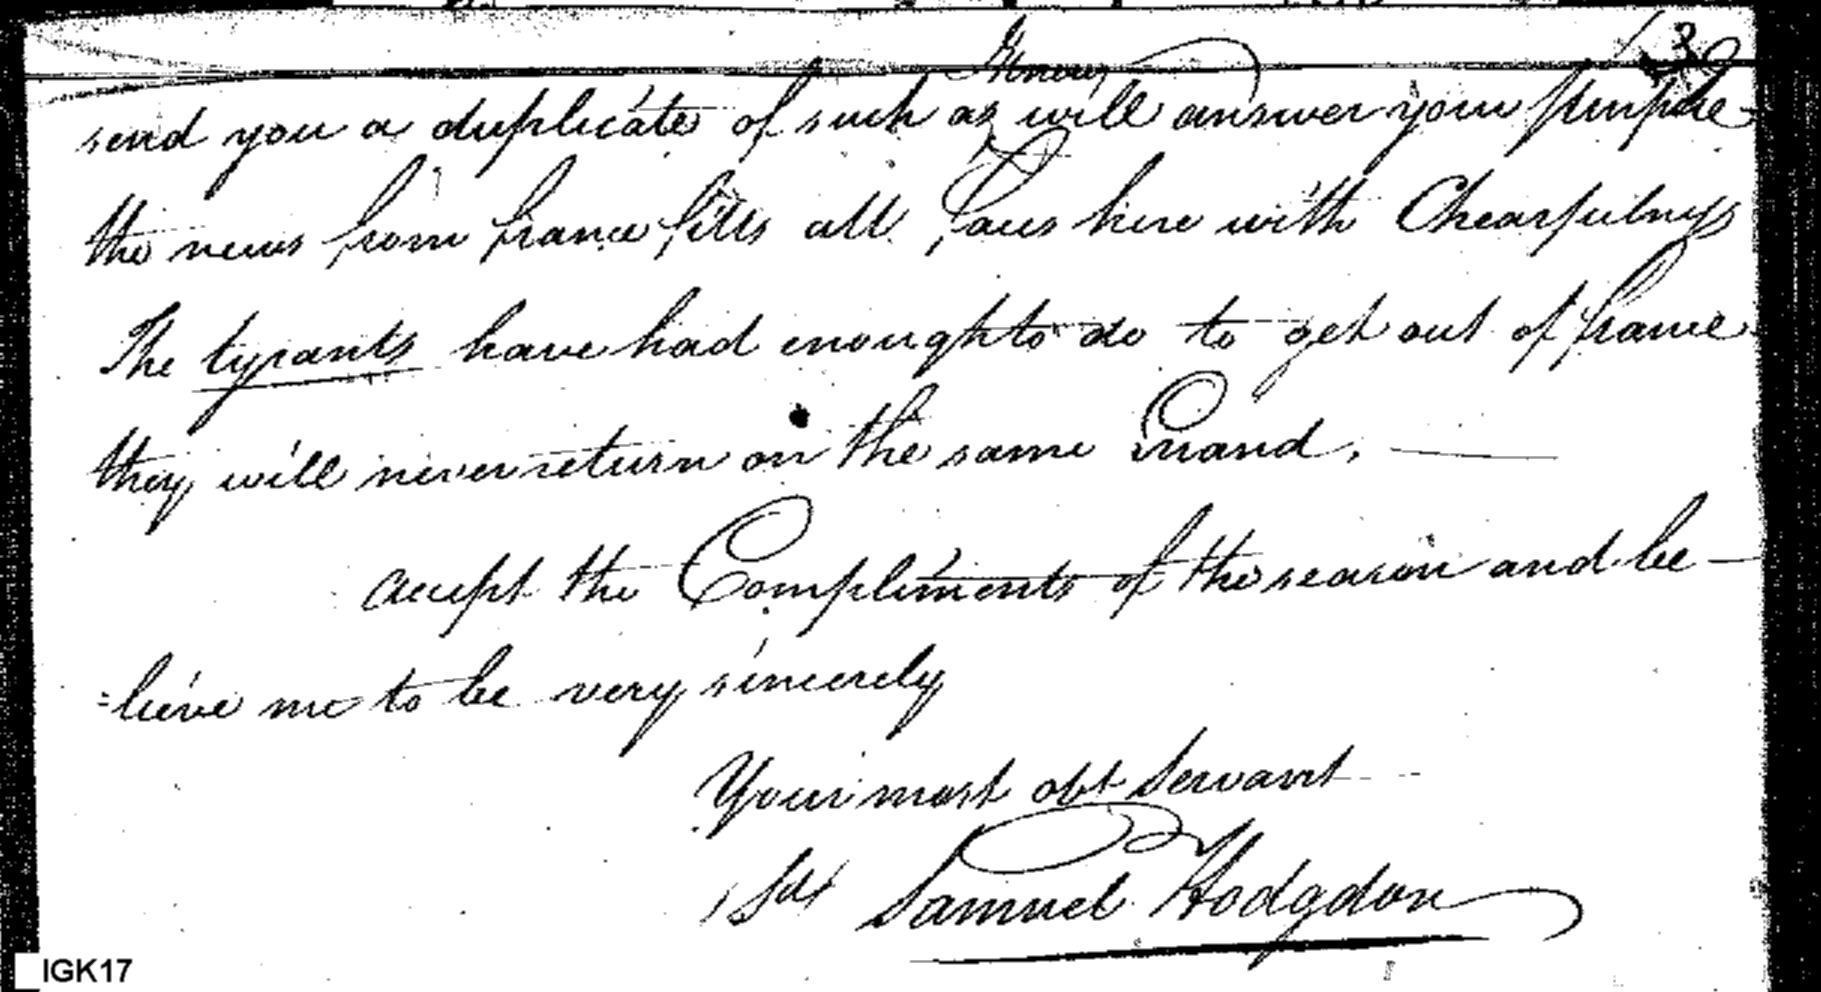 139
I know
send you a duplicate of such as will answer your purpose
the news from france fills all faces here with Chearfulness
The tyrants have had enough to do to get out of france
they will never return on the same Errand.
accept the Compliments of the season and be
=lieve me to be very sincerely
Your most obt Servant
(Sd) Samuel Hodgdon
IGK17